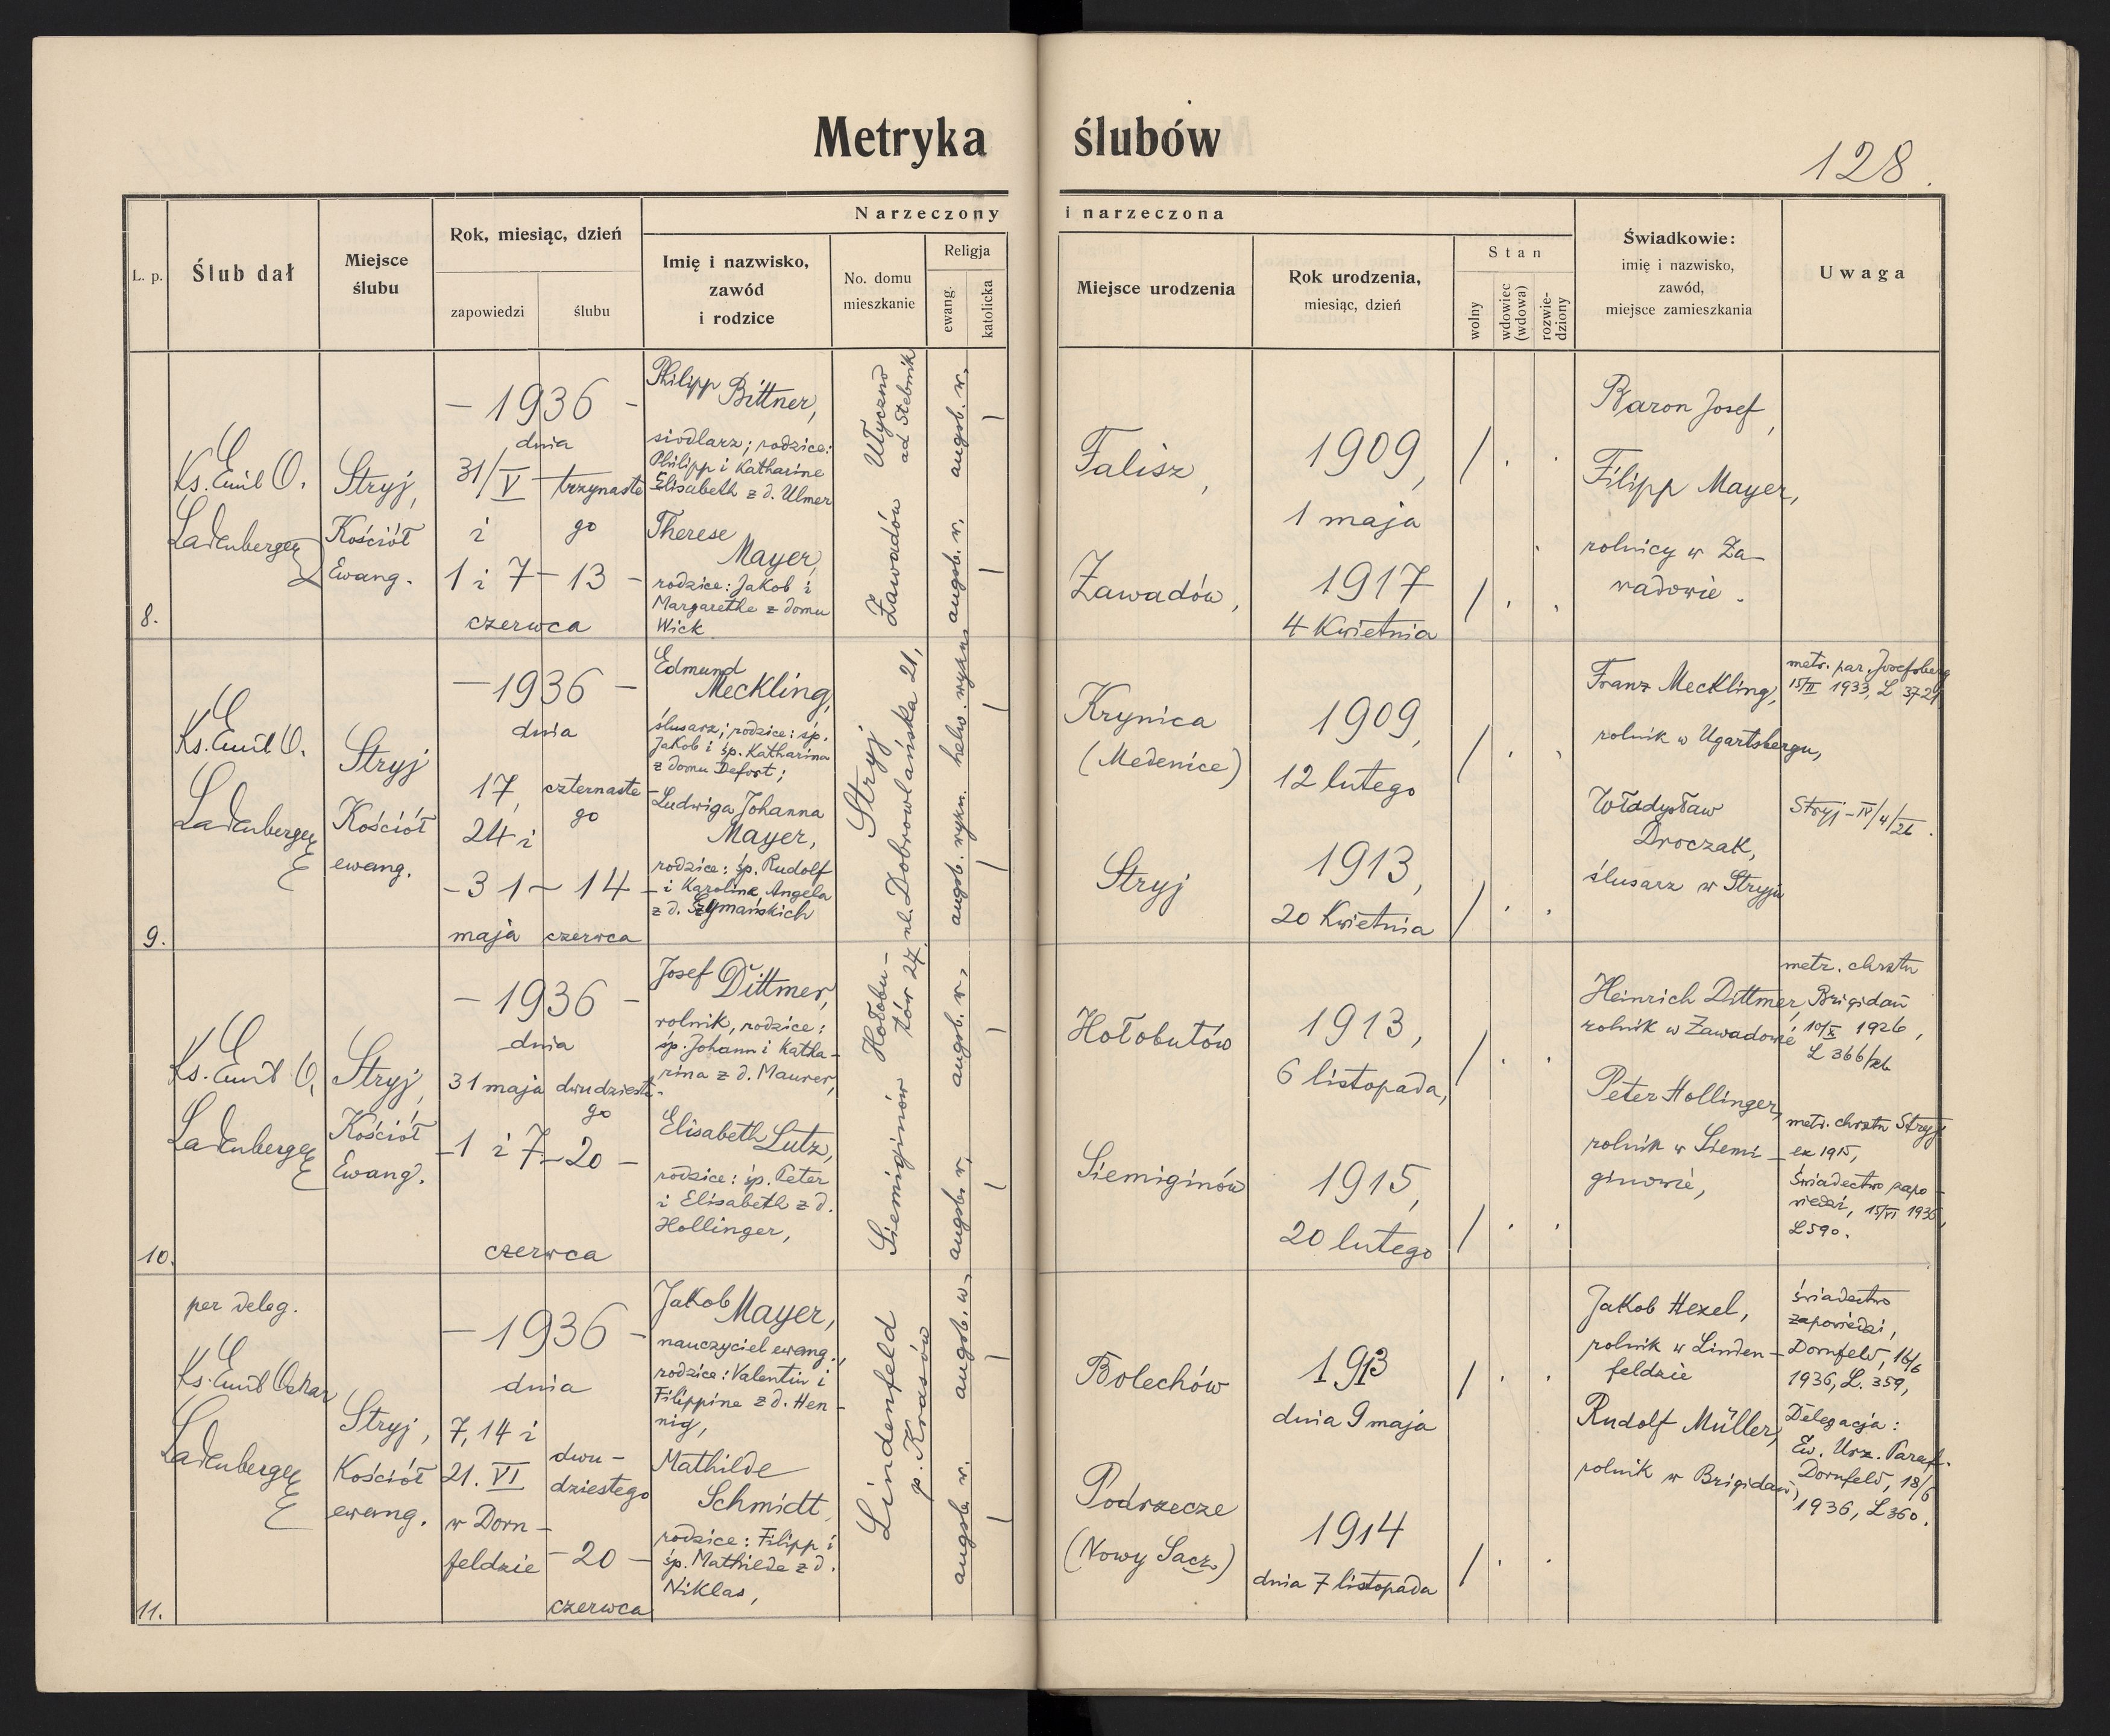 Metryka ślubów
128.
Narzeczony i narzeczona
L. p.
Ślub dał
Miejsce
ślubu
Rok, miesiąc, dzień
zapowiedzi
ślubu
Imię i nazwisko,
zawód
i rodzice
No. domu
mieszkanie
Religja
ewang.
katolicka
Miejsce urodzenia
Rok urodzenia,
miesiąc, dzień
Stan
wolny
wdowiec
(wdowa)
rozwie-
dziony
Świadkowie:
imię i nazwisko,
zawód,
miejsce zamieszkania
Uwaga
8.
Ks. Emil O.
Ladenberger
Stryj,
Kościół
Ewang.
– 1936 –
dnia
31/V
i
1 i 7
trzynaste
go
– 13 –
czerwca
Philipp Bittner,
siodlarz; rodzice:
Philipp i Katharine
Elisabeth z d. Ulmer
Therese
Mayer,
rodzice: Jakob i
Margarethe z domu
Wick
Ułyczno
ad Stebnik
Zawadów
augsb. w.
augsb. w.
Falisz,
Zawadów,
1909,
1 maja
1917
4 Kwietnia
Baron Josef,
Filipp Mayer,
rolnicy w Za-
wadowie.
9.
Ks. Emil O.
Ladenberger
Stryj
Kościół
ewang.
– 1936 –
dnia
17,
24 i
– 31 –
maja
czternaste
go
14 –
czerwca
Edmund
Meckling,
ślusarz; rodzice: śp.
Jakob i śp. Katharina
z domu Defort;
Ludwiga Johanna
Mayer,
rodzice: śp. Rudolf
i Karoline Angela
z d. Szymańskich
Stryj
ul. Dobrowlańska 21,
helw. wyzn.
augsb. wyzn.
Krynica
(Medenice)
Stryj
1909,
12 lutego
1913,
20 Kwietnia
Franz Meckling,
rolnik w Ugartsbergu,
Władysław
Droczak,
ślusarz w Stryju
metr. par. Josefsberg
1933, L 372
Stryj – IV/4/26.
10.
Ks. Emil O.
Ladenberger
Stryj,
Kościół
Ewang.
– 1936 –
dnia
31 maja
– 1 i 7
dwudzieste-
go
– 20 –
czerwca
Josef Dittmer,
rolnik, rodzice:
śp. Johann i Katha-
rina z d. Maurer,
Elisabeth Lutz,
rodzice: śp. Peter
i Elisabeth z d.
Hollinger,
Hołobu-
tów 27,
Siemiginów
augsb. w.,
augsb. w.
Hołobutów
Siemiginów
1913,
6 listopada,
1915,
20 lutego
Heinrich Dittmer,
rolnik w Zawadowie
Peter Hollinger,
rolnik w Siemi-
ginowie,
metr. chrztu
Brigidau
10/X 1926,
L 366/26
metr. chrztu Stryj
ex 1915,
Świadectwo zapo-
wiedzi, 15/VI 1936,
L 590.
11.
per deleg.
Ks. Emil Oskar
Ladenberger
Stryj,
Kościół
ewang.
– 1936 –
dnia
7, 14 i
21. VI
w Dorn-
feldzie
dwu-
dziestego
– 20 –
czerwca
Jakob Mayer,
nauczyciel ewang.,
rodzice: Valentin i
Filippine z d. Hen-
nig,
Mathilde
Schmidt,
rodzice: Filipp i
śp. Mathilde z d.
Niklas,
Lindenfeld
p. Krasów
augsb. w.
augsb. w.
Bolechów
Podrzecze
(Nowy Sącz)
1913
dnia 9 maja
1914
dnia 7 listopada
Jakob Hexel,
rolnik w Linden-
feldzie
Rudolf Müller,
rolnik w Brigidau,
świadectwo
zapowiedzi,
Dornfeld, 16/6
1936, L. 359,
Delegacja:
Ew. Urz. Paraf.
Dornfeld, 18/6
1936, L 360.